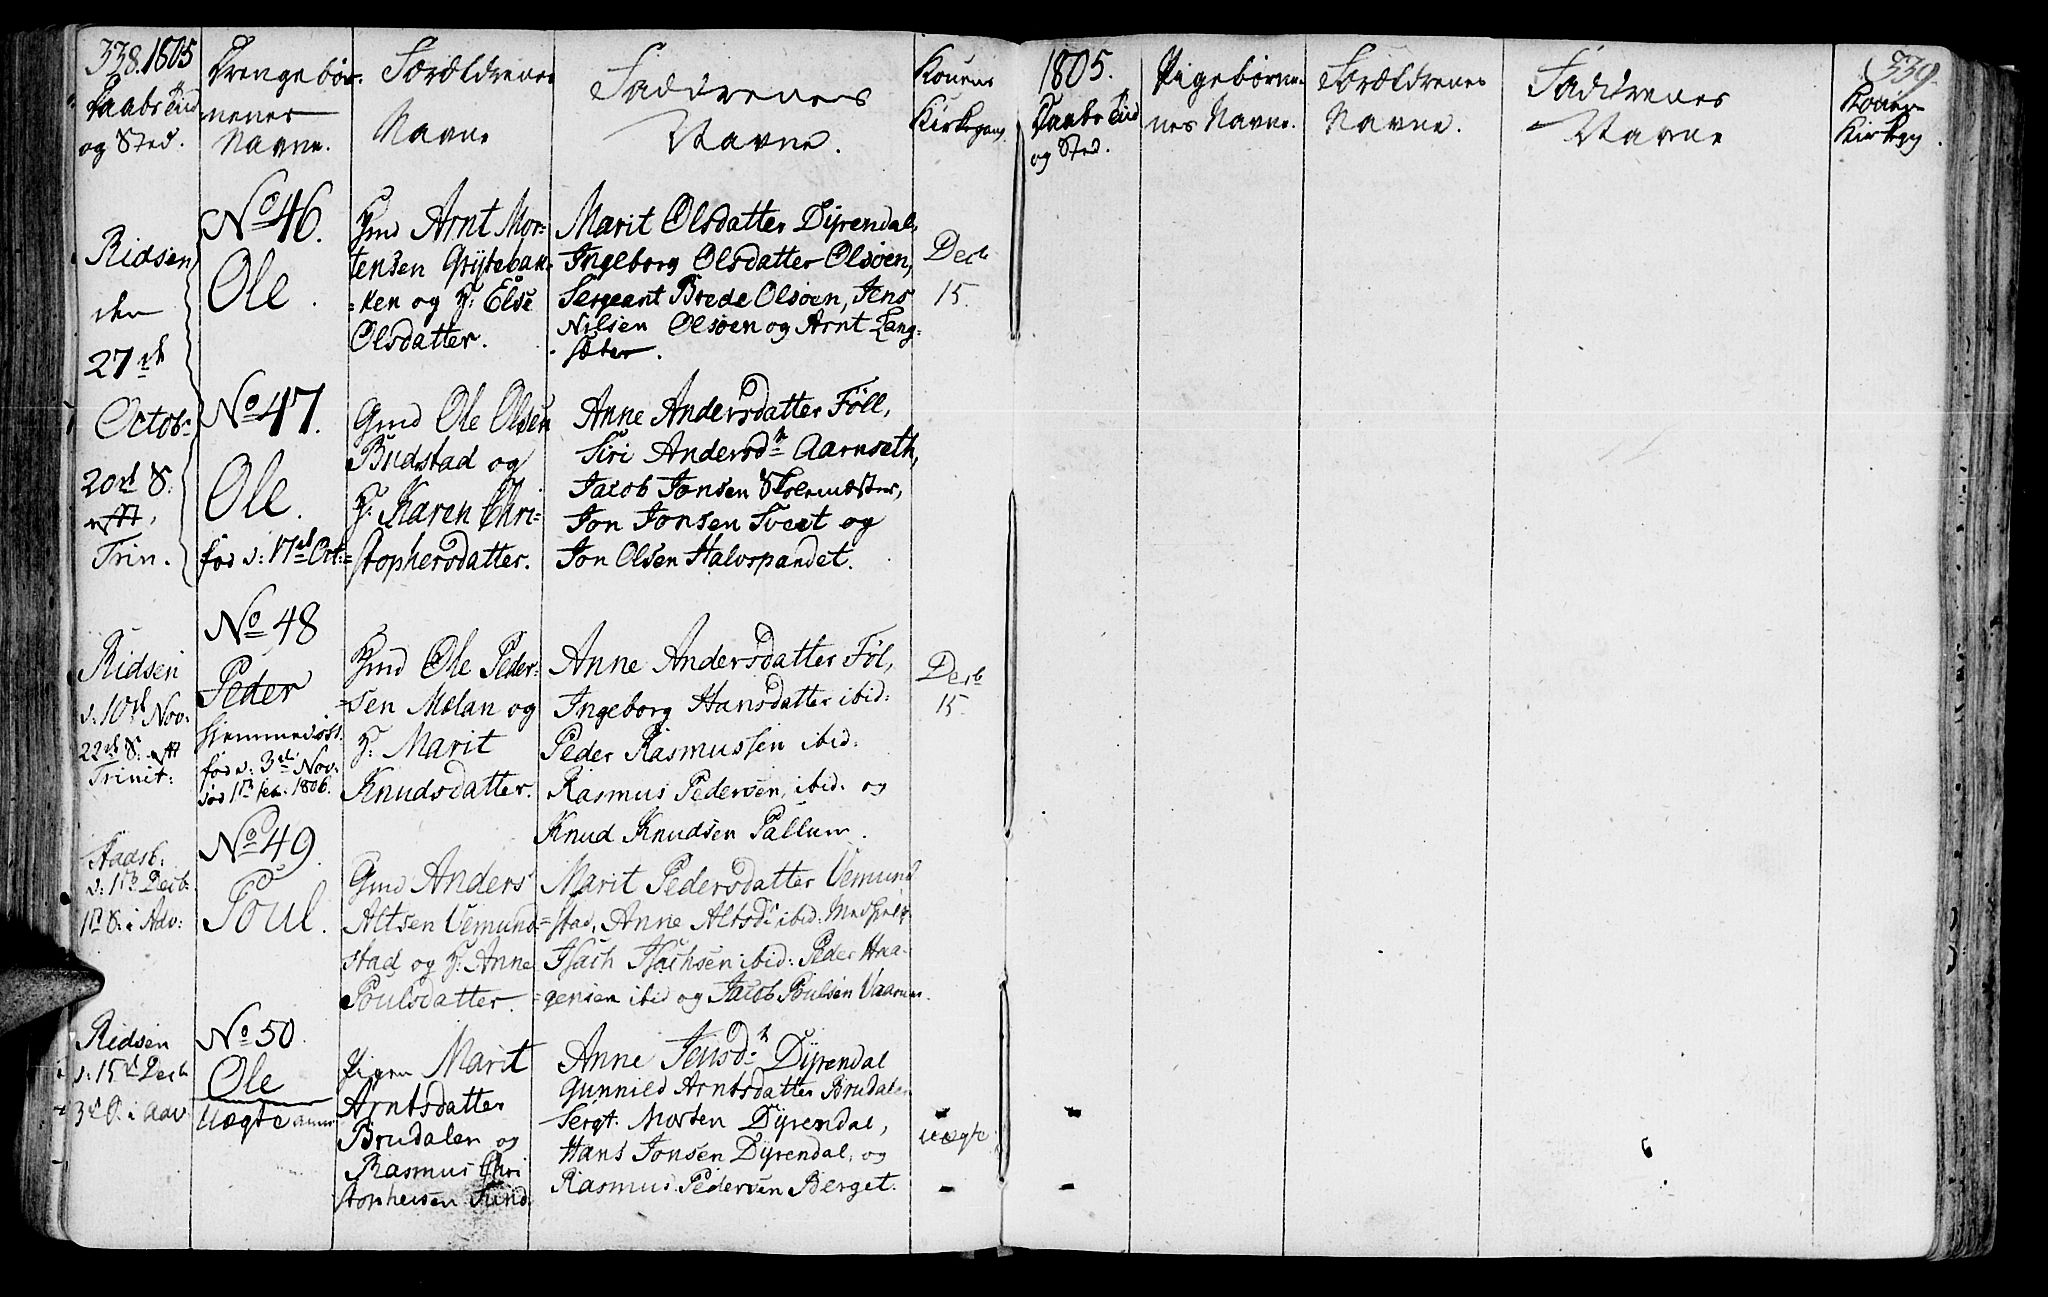 338. 1805
Daabs Tiid
og Sted.
Drengebør-
nenes
Navne.
Forældrenes
Navne
Faddrenes
Navne.
Konens
Kirkegang.
Ridsen
den
27de
Octobr
20d S.
efft.
Trin.
No 46.
Ole.
Gmd Arnt Mor-
tensen Grytebak-
ken og H: Else
Olsdatter.
Marit Olsdatter Dyrendal,
Ingeborg Olsdatter Olsöen,
Sergeant Brede Olsöen, Jens
Nilsen Olsöen og Arnt Lang-
sæter.
Decb
15.
No 47.
Ole.
fød d: 17d Oct:
Gmd Ole Olsen
Budstad og
H: Karen Chri-
stophersdatter.
Anne Andersdatter Föll,
Siri Andersdr Aarnseth,
Jacob Jonsen Skolemæster,
Jon Jonsen Tveet og
Jon Olsen Halvspandet.
Ridsen
d: 10d Nov:
22d S. efft
Trinit:
No 48
Peder
hiemmedøbt
fød d: 3d Nov:
død 1ste feb. 1806.
Gmd Ole Peder-
sen Melan og
H: Marit
Knudsdatter.
Anne Andersdatter Föl,
Ingeborg Hansdatter ibid:
Peder Rasmussen ibid:
Rasmus Pedersen ibid: og
Knud Knudsen Pallum.
Decb
15.
Stadsb:
d: 1ste Decb.
1ste S. i Adv:
No 49.
Poul.
Gmd Anders
Altsen Vemund-
stad og H: Anne
Poulsdatter.
Marit Pedersdatter Vemund-
stad, Anne Altsd: ibid:
Isach Isachsen ibid: Peder Haa-
gensen ibid og Jacob Poulsen
Ridsen
d: 15d Decb
3d S. i Adv
No 50.
Ole
Uægte
Pigen Marit
Arntsdatter
Brudalen og
Rasmus Chri
stophersen Sund.
Anne Jensdr Dyrendal
Gunnild Arntsdatter Brudalen
Sergt: Morten Dyrendal,
Hans Jonsen Dyrendal, og
Rasmus Pedersen Berget.
uægte
1805.
Daabs Tiid
og Sted.
Pigebørne-
nes Navne.
Forældrenes
Navne.
Faddrenes
Navne
339.
Konens
Kirkeg.